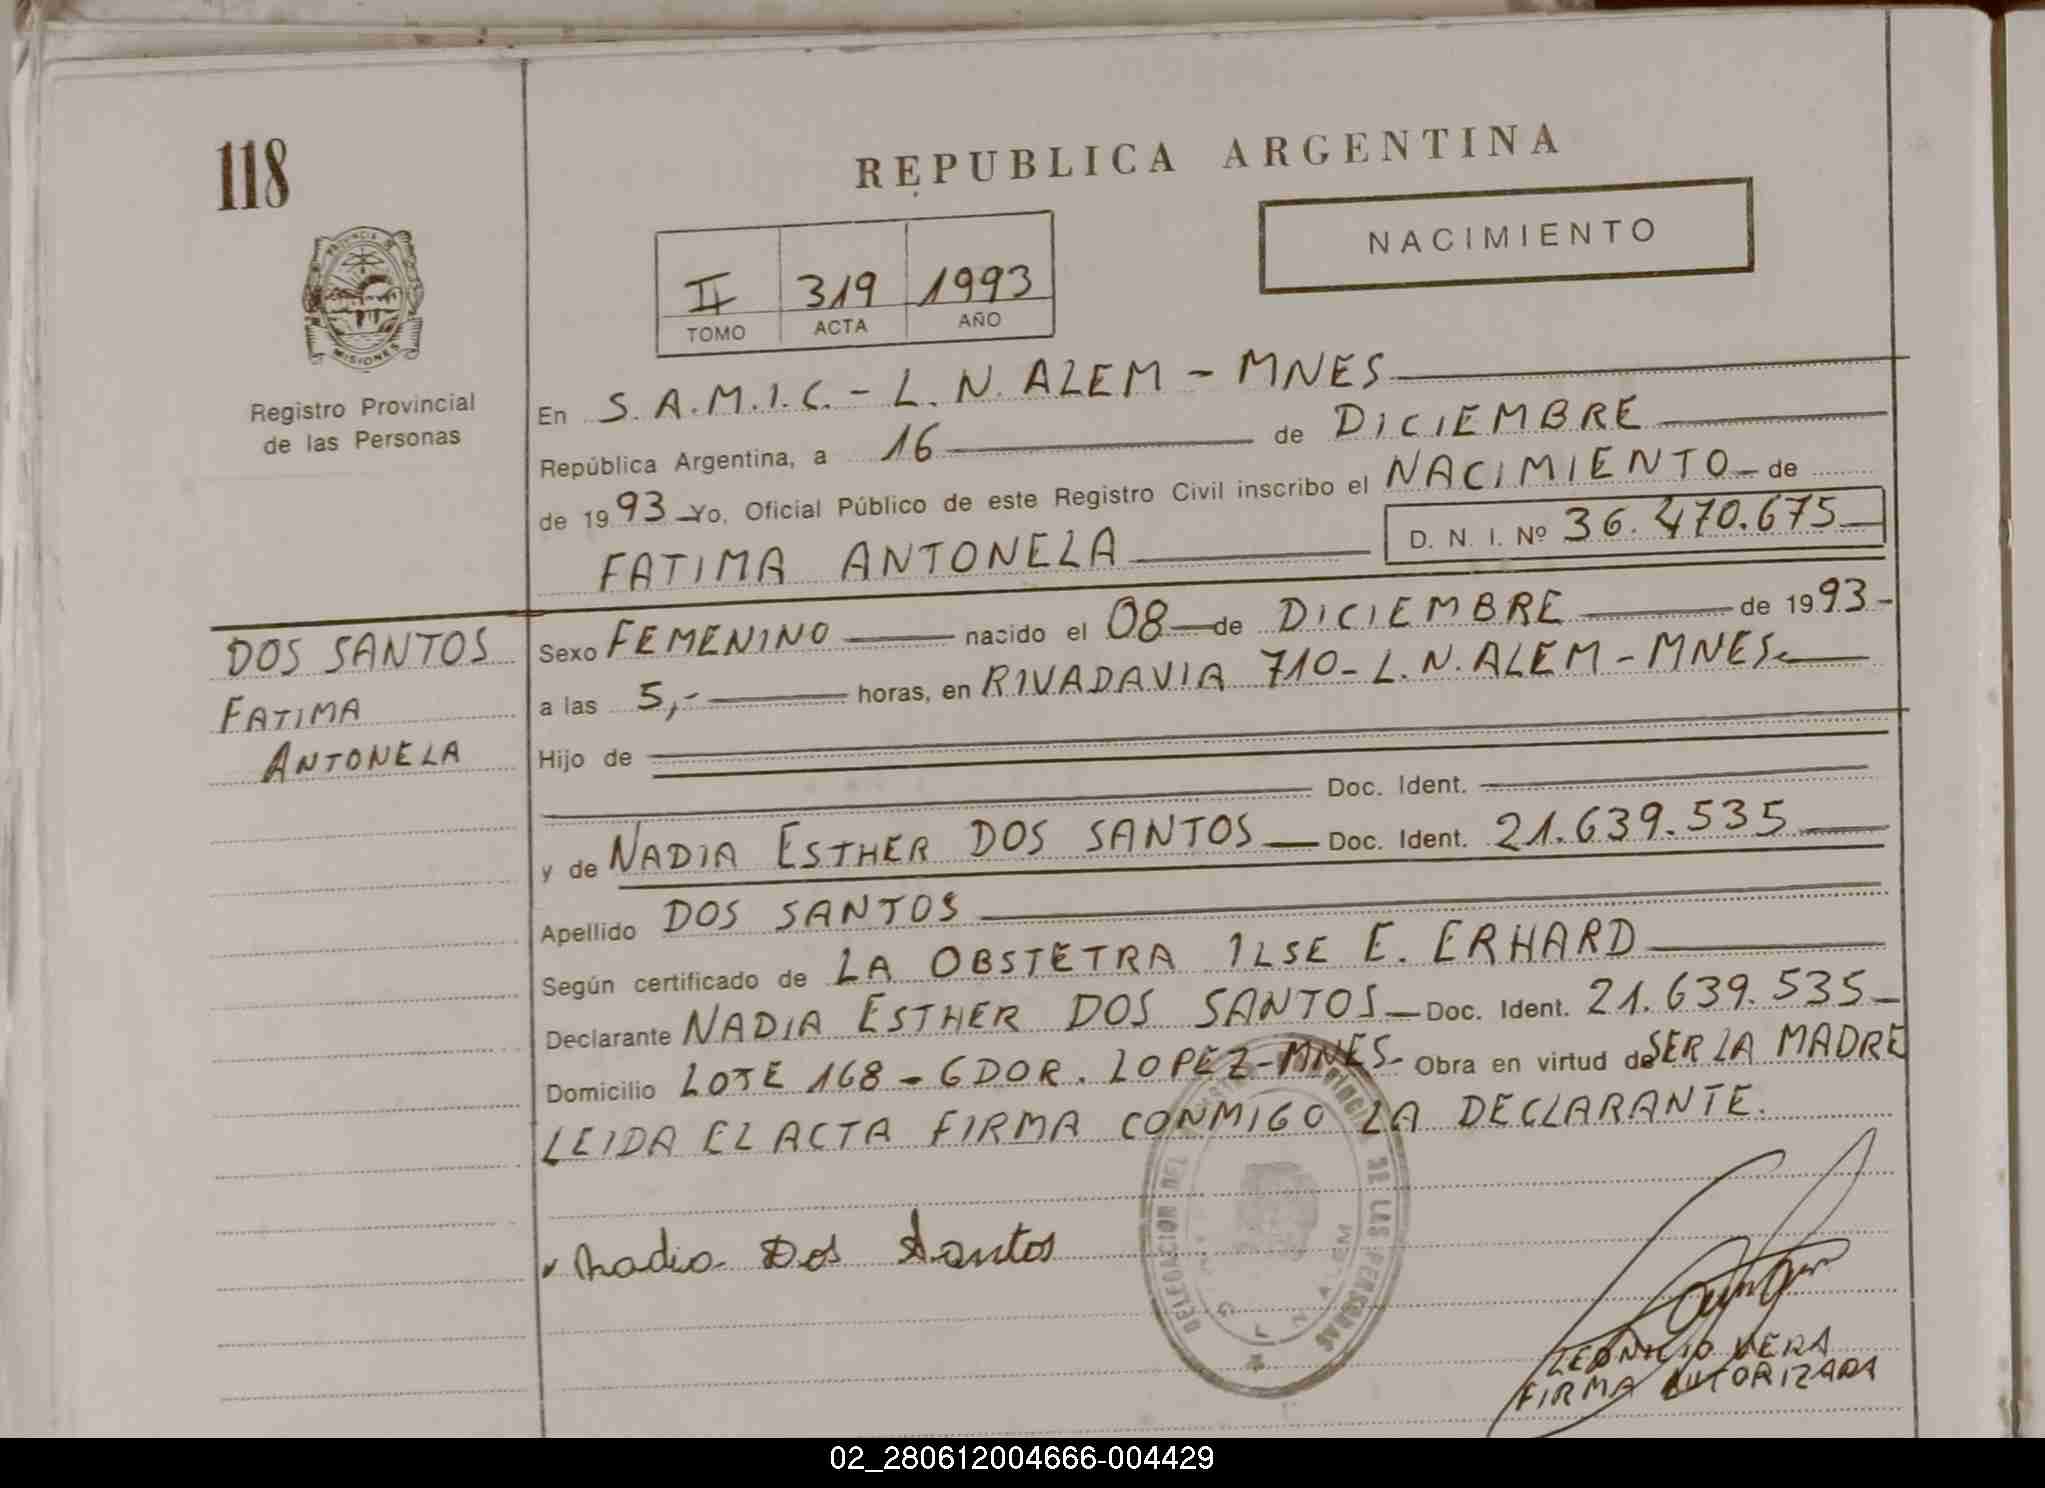 118
REPUBLICA ARGENTINA
NACIMIENTO
PROVINCIA DE
MISIONES
II 319 1993
TOMO ACTA AÑO
Registro Provincial
de las Personas
En S.A.M.I.C. - L. N. ALEM - MNES
República Argentina, a 16 de DICIEMBRE
de 1993 Yo, Oficial Público de este Registro Civil inscribo el NACIMIENTO de
FATIMA ANTONELA D. N. I. Nº 36.470.675
DOS SANTOS
FATIMA
ANTONELA
Sexo FEMENINO nacido el 08 de DICIEMBRE de 1993-
a las 5,- horas, en RIVADAVIA 710- L. N. ALEM - MNES.
Hijo de
Doc. Ident.
y de NADIA ESTHER DOS SANTOS Doc. Ident. 21.639.535
Apellido DOS SANTOS
Según certificado de LA OBSTETRA ILSE E. ERHARD
Declarante NADIA ESTHER DOS SANTOS Doc. Ident. 21.639.535
Domicilio LOTE 168 - GDOR. LOPEZ-MNES- Obra en virtud de SER LA MADRE
LEIDA EL ACTA FIRMA CONMIGO LA DECLARANTE.
Nadia Dos Santos
DELEGACION DEL DE LAS PERSONAS
ALEM
LEONCIO VERA
FIRMA AUTORIZADA
02_280612004666-004429